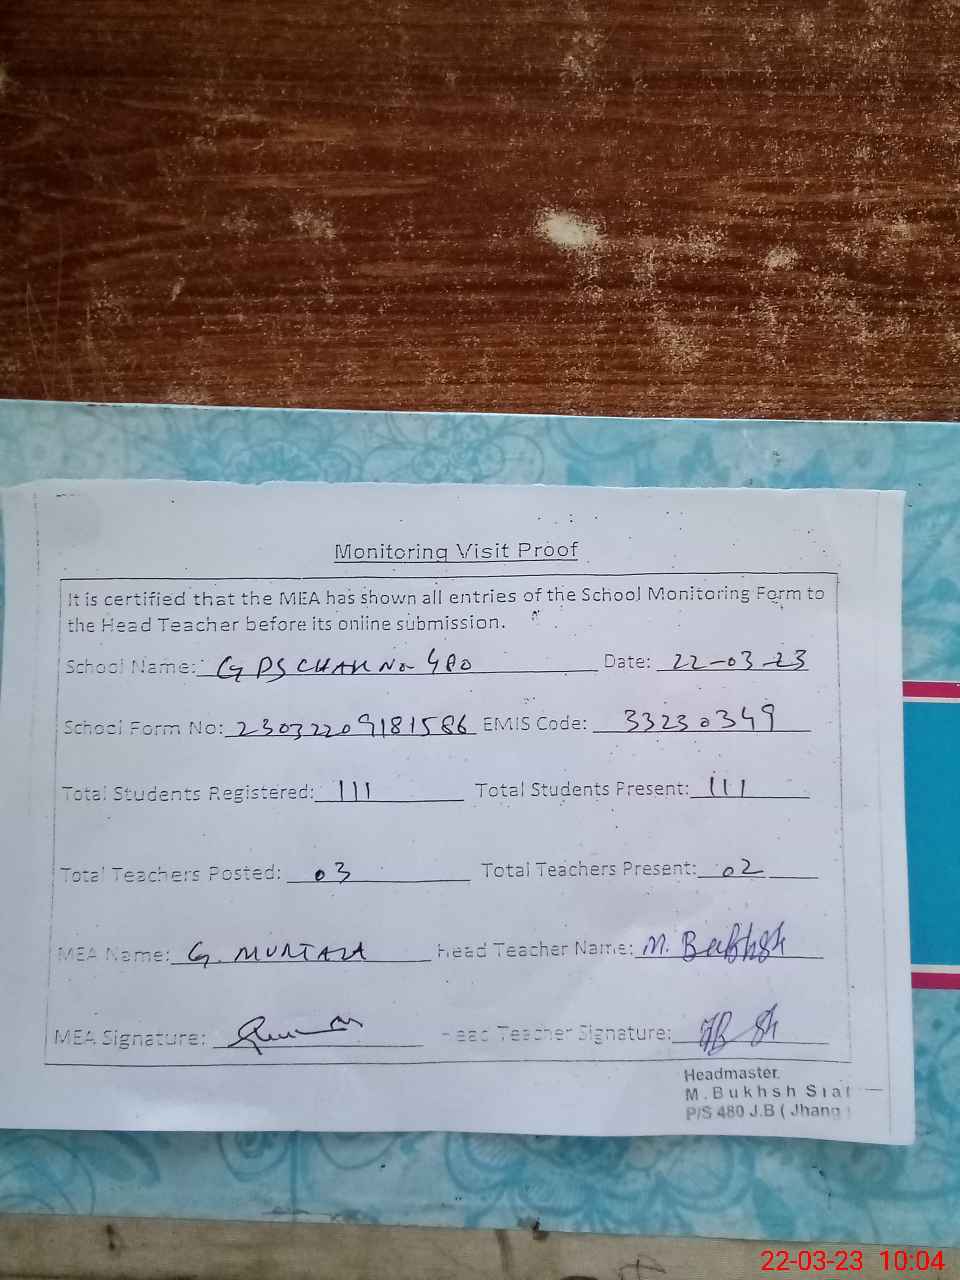 Monitoring Visit Proof
It is certified that the MEA has shown all entries of the School Monitoring Form to
the Head Teacher before its online submission.
School Name: G PS CHAK No 480 Date: 22-03-23
School Form No: 23032209181586 EMIS Code: 33230349
Total Students Registered: 111 Total Students Present: 111
Total Teachers Posted: 03 Total Teachers Present: 02
MEA Name: G. MURTAZA Head Teacher Name: M. Bukhsh
MEA Signature: Head Teacher Signature:
Headmaster.
M. Bukhsh Sial
P/S 480 J.B ( Jhang )
22-03-23 10:04